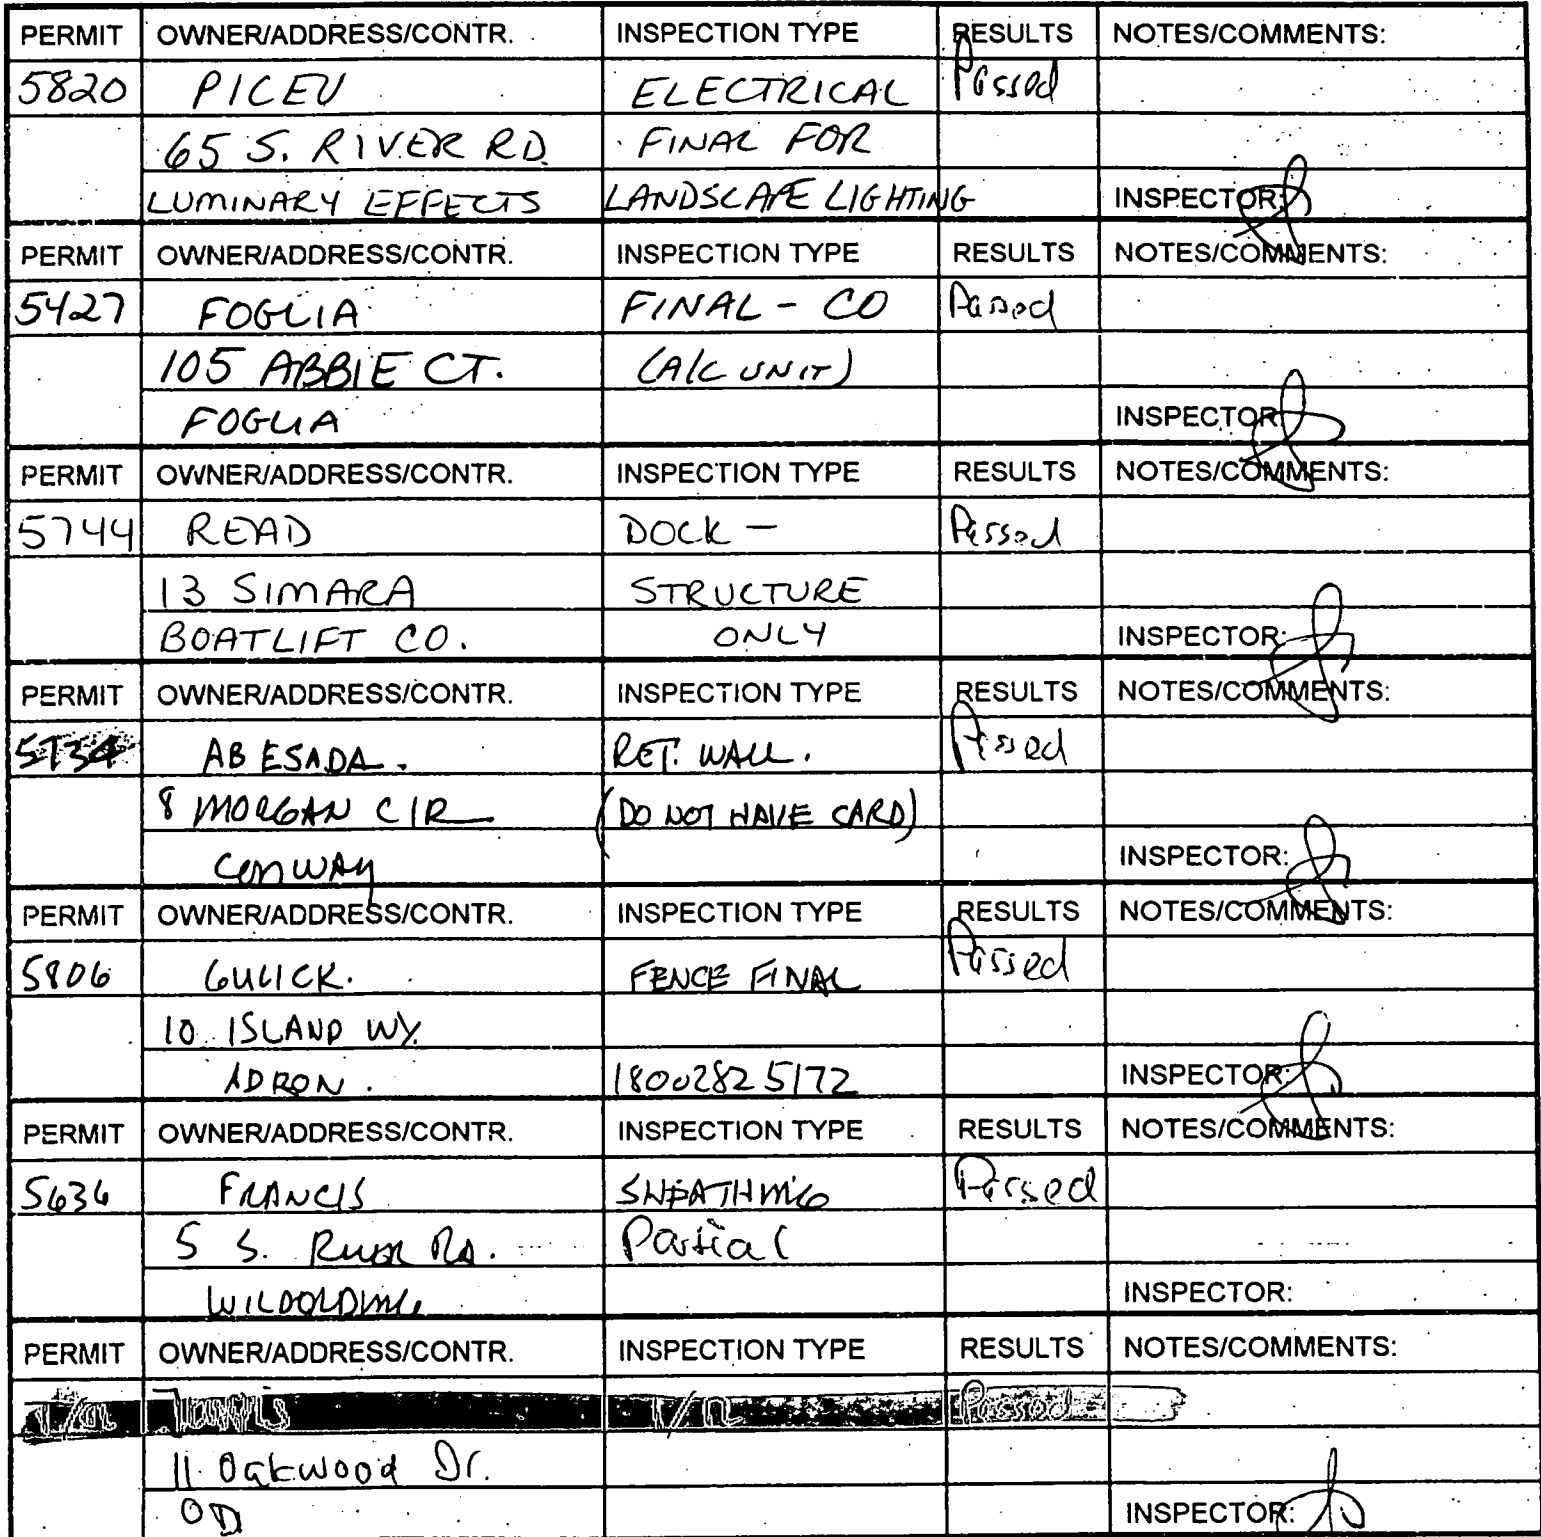 PERMIT OWNER/ADDRESS/CONTR. INSPECTION TYPE RESULTS NOTES/COMMENTS:
5820 PICEU ELECTRICAL Passed
65 S. RIVER RD. FINAL FOR
LUMINARY EFFECTS LANDSCAPE LIGHTING INSPECTOR:
PERMIT OWNER/ADDRESS/CONTR. INSPECTION TYPE RESULTS NOTES/COMMENTS:
5427 FOGLIA FINAL - CO Passed
105 ABBIE CT. (A/C UNIT)
FOGLIA INSPECTOR:
PERMIT OWNER/ADDRESS/CONTR. INSPECTION TYPE RESULTS NOTES/COMMENTS:
5744 READ DOCK - Passed
13 SIMARA STRUCTURE
BOATLIFT CO. ONLY INSPECTOR:
PERMIT OWNER/ADDRESS/CONTR. INSPECTION TYPE RESULTS NOTES/COMMENTS:
5734 ABESADA. RET. WALL. Passed
8 MORGAN CIR (DO NOT HAVE CARD)
CONWAY INSPECTOR:
PERMIT OWNER/ADDRESS/CONTR. INSPECTION TYPE RESULTS NOTES/COMMENTS:
5806 GULICK. FENCE FINAL Passed
10 ISLAND WY.
ADRON. 18002825172 INSPECTOR:
PERMIT OWNER/ADDRESS/CONTR. INSPECTION TYPE RESULTS NOTES/COMMENTS:
5636 FRANCIS SHEATHING Passed
5 S. RIVER RD. Partial
INSPECTOR:
PERMIT OWNER/ADDRESS/CONTR. INSPECTION TYPE RESULTS NOTES/COMMENTS:
Passed
11 Oakwood Dr.
OD INSPECTOR: